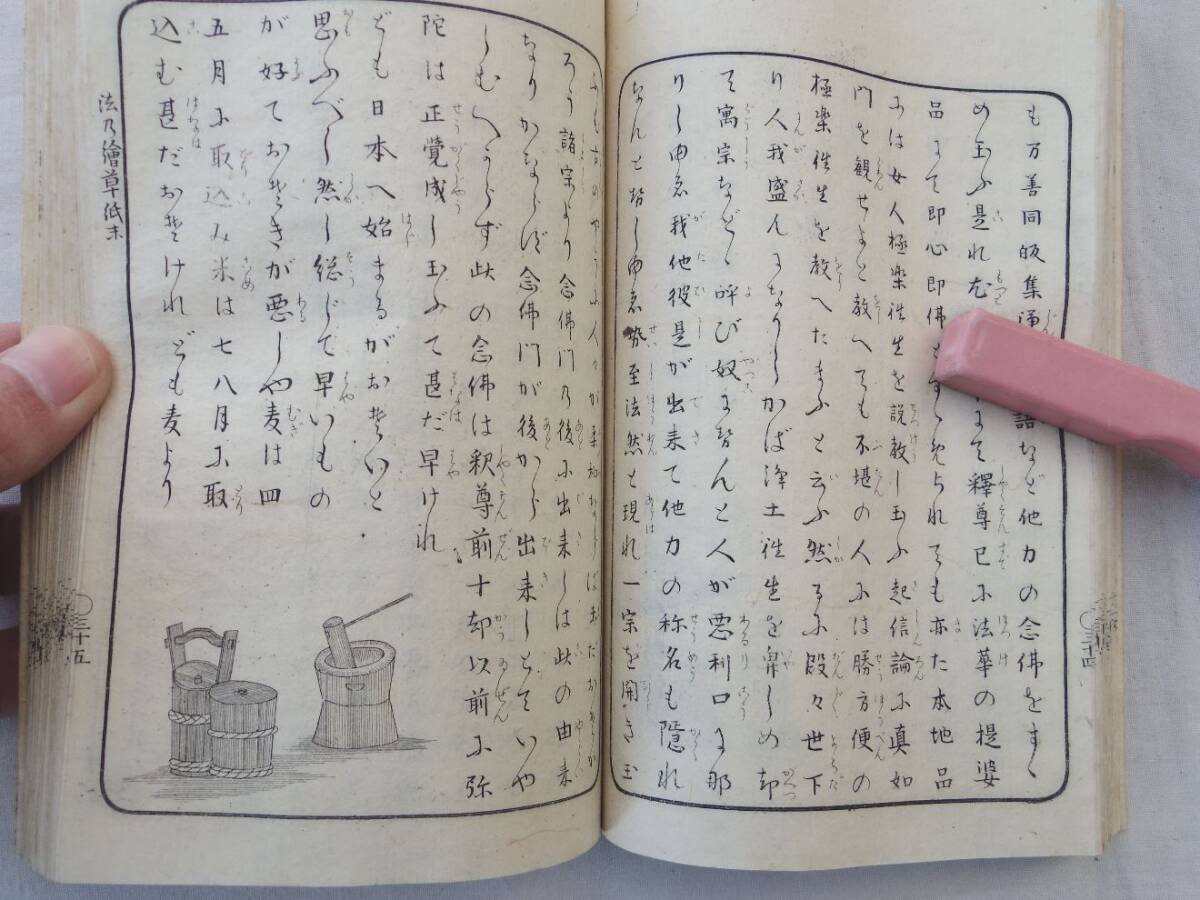 も万善同帰集
語など他力の念佛をすゝ
め玉ふ是れ
まで釋尊已に法華の提婆
品まで即心即佛
られても亦た本地品
には女人極楽往生を説教し玉ふ起信論に真如
門を観せよと教へても不堪の人には勝方便の
極楽往生を教へたまふと云ふ然るに段々世下
り人我盛んになりしかば浄土往生を卑しめ却
て寓宗などゝ呼び奴まで
んと人が悪利口に那
りし由ゑ我他彼是が出来て他力の称名も隠れ
なんとせし由ゑ勢至法然と現れ一宗を開き玉
ろう諸宗より念佛門乃後に出来しは此の由来
なりかならず念佛門が後から出来しとていや
しむべからず此の念佛は釈尊前十却以前に弥
陀は正覚成し玉ふて甚だ早けれ
ども日本へ始まるがおそいと
思ふべし然し総じて早いもの
が好ておそきが悪しや麦は四
五月に取込み米は七八月に取
込む甚だおそけれども麦より
法乃繪草紙末
〇三十五
〇三十四